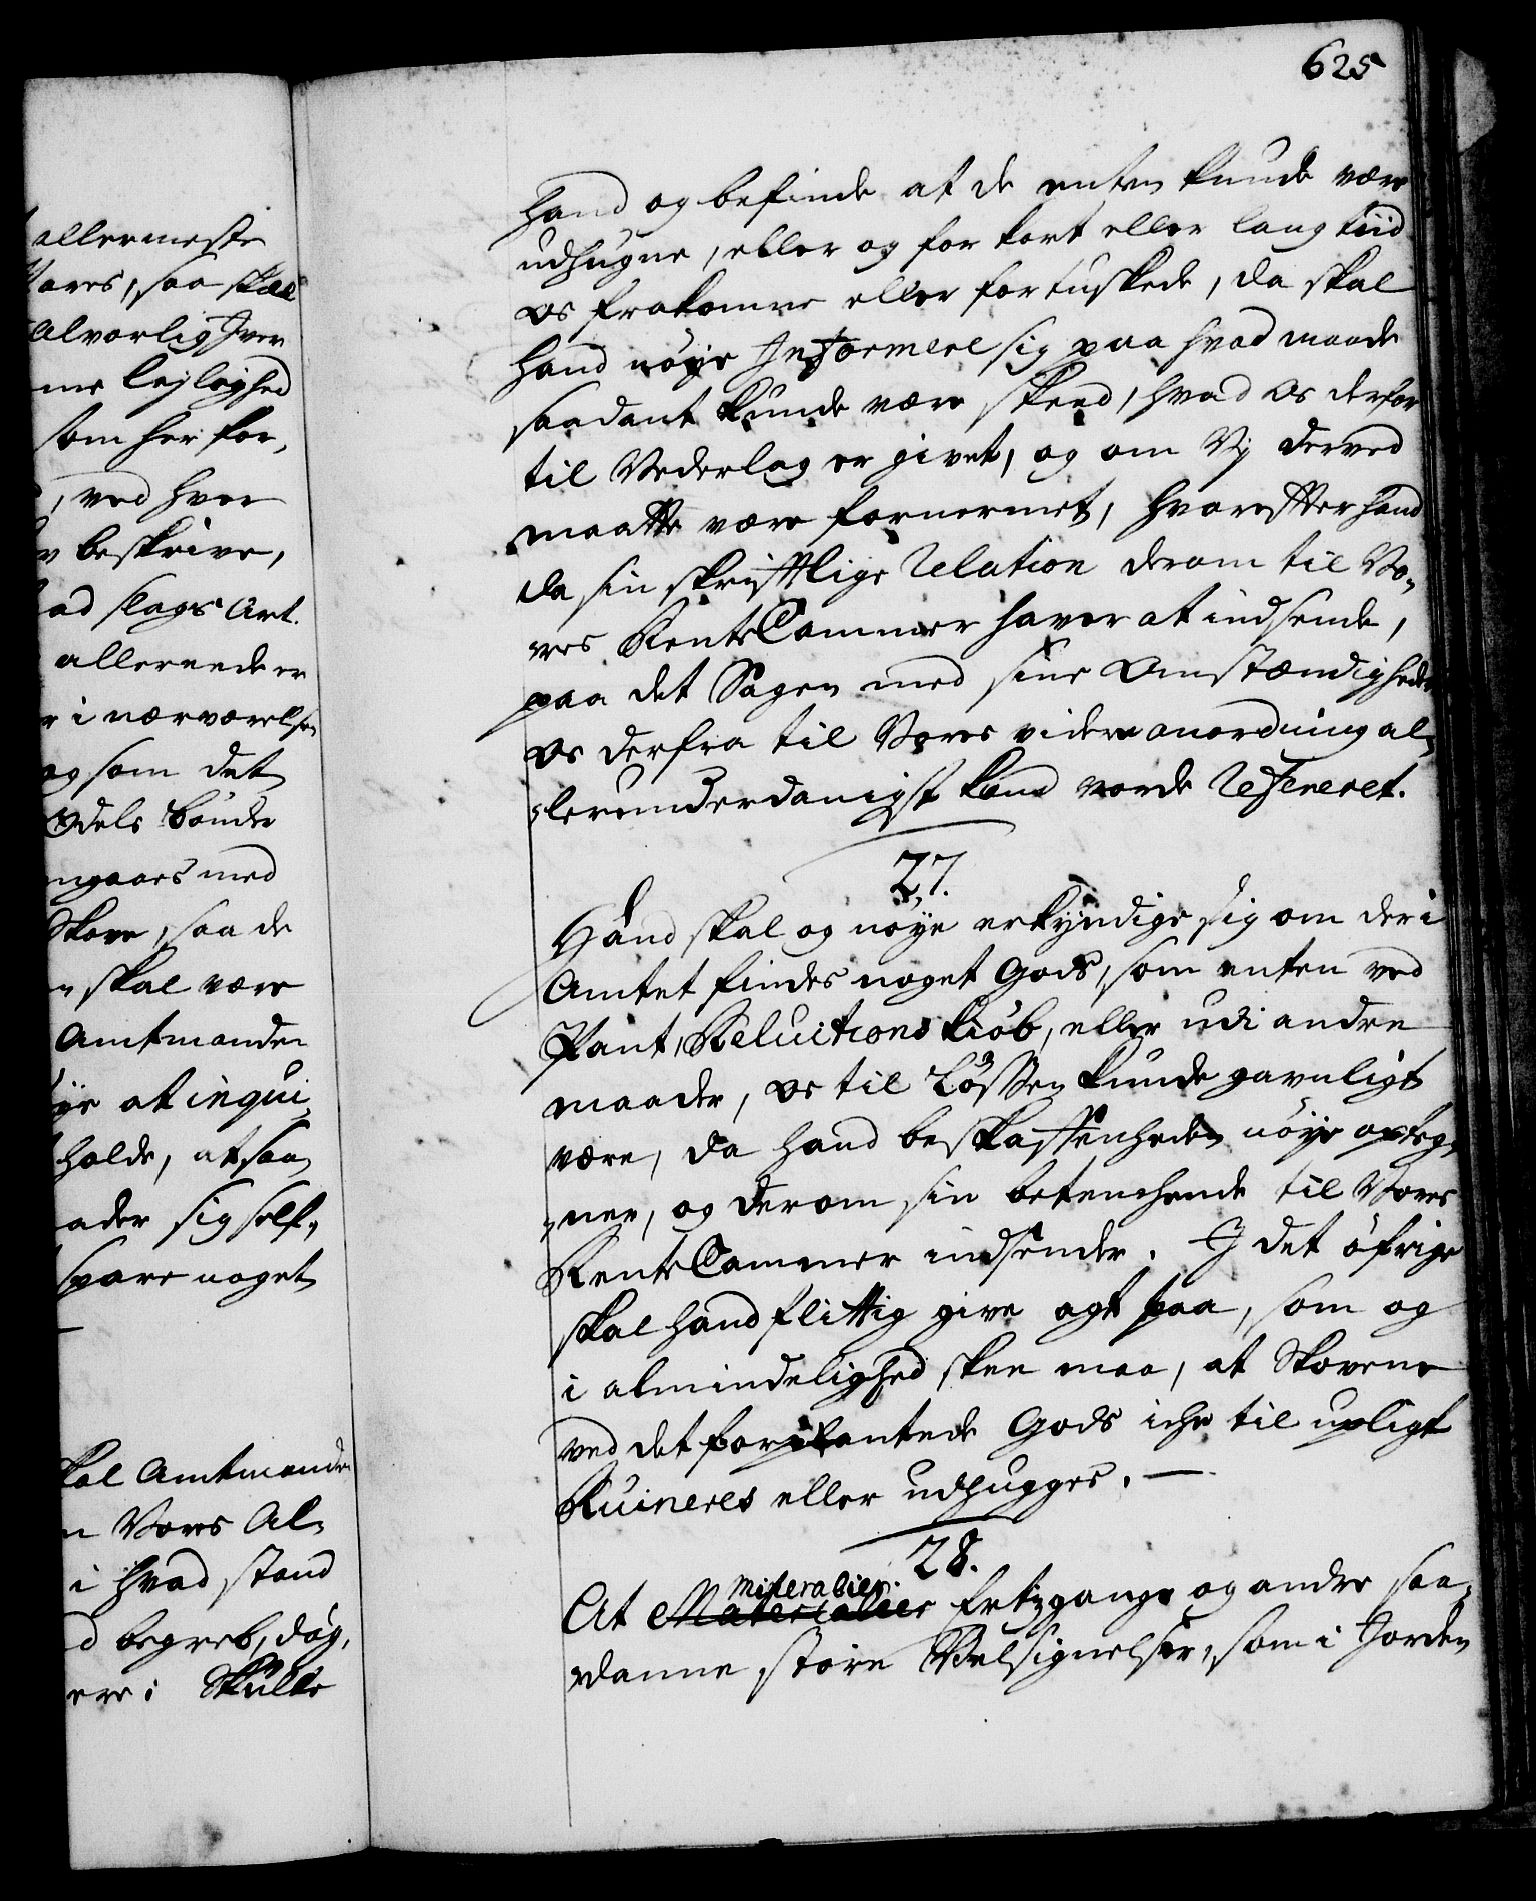 625
allermeste
Vores, saa skal
Alvorlig Iver
me lejlighed
som her for,
, ved hver
beskrive,
ad slags Art.
allereede er
r i nærværelse
og som det
Odels Bønder
mgaars med
Skove, saa de
n skal være
Amtmanden
at inqui,
holde, at saa,
ader sig self,
spare noget
skal Amtmanden
n Vores Al,
i hvad stand
d begreb, dog,
ere i Skulde
hand og befinde at de enten kunde være
udhugne, eller og for kort eller lang tiid
os frakomne eller fortuskede, da skal
hand nöye Informere sig paa hvad maade
saadant kunde være skeed, hvad os derfor
til Vederlag er givet, og om Vj derved
maatte være fornermet, hvorefter hand
da sin skriftlige Relation derom til Vo,
res RenteCammer haver at indsende,
paa det Sagen med sine Omstændigheder
os derfra til Vores videre anordning al,
lerunderdanigst kand vorde Refereret.
27.
Hand skal og nöye erkyndige sig om der i
Amtet findes noget Gods, som enten ved
Pant, Reluitions kiöb, eller udi andre
maader, os til Lössen kunde gavnligt
være, da hand beskaffenheden nöye opteg,
ner, og derom sin betenchende til Vores
RenteCammer indsender. I det öfrige
skal hand flittig give agt paa, som og
i almindelighed skee maa, at Skovene
ved det forpantede Gods iche til upligt
Ruineres eller udhugges. —
28.
Mineralier.
At Materialier Ertzgange og andre saa,
danne store Velsignelser, som i Jorden